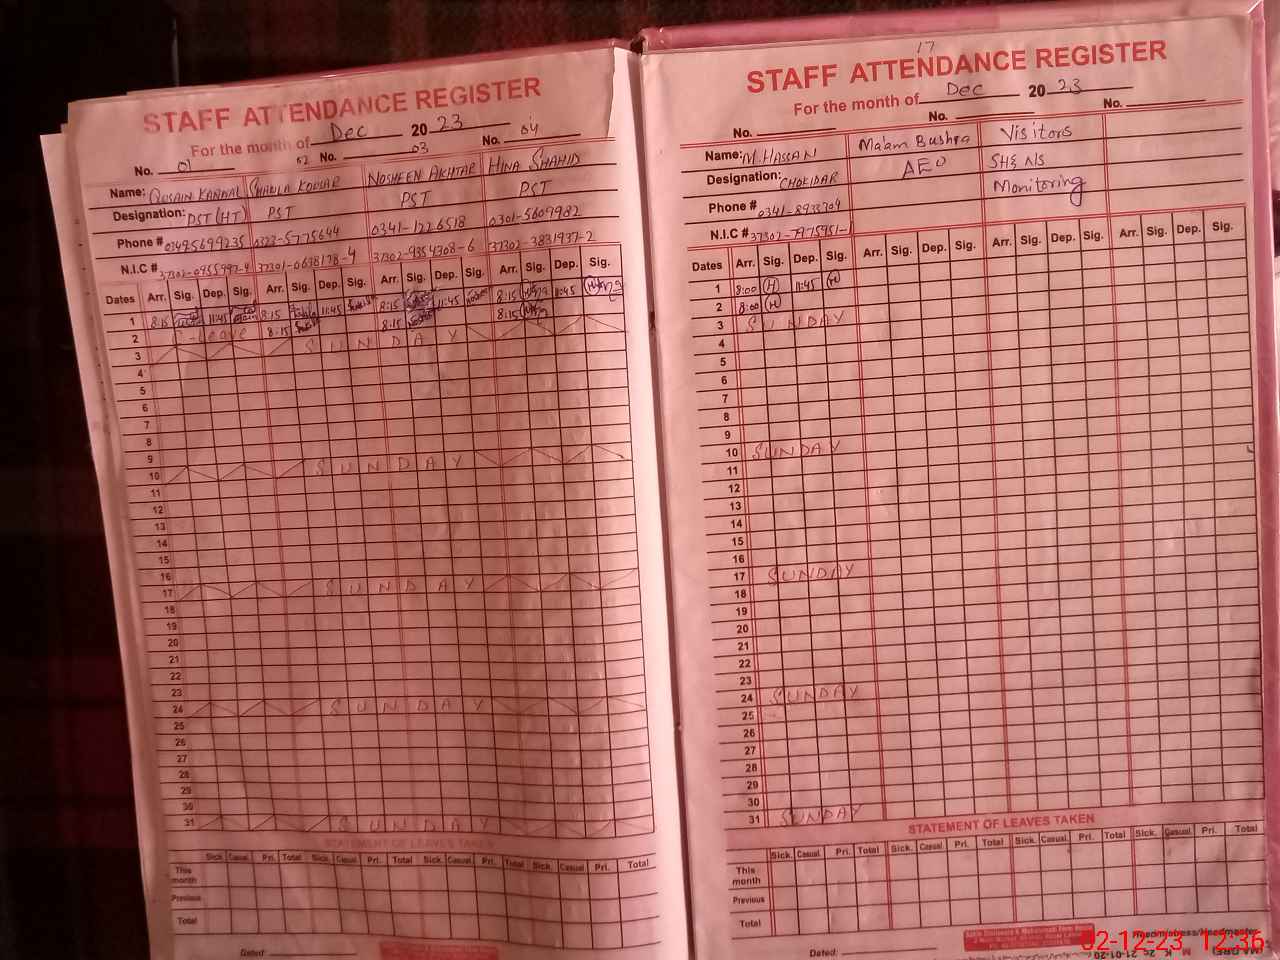 STAFF ATTENDANCE REGISTER
For the month of Dec 2023
No. 01 02 No. 03 No. 04
Name: SHAHLA KOUSAR NOSHEEN AKHTAR HINA SHAHID
Designation: PST (HT) PST PST PST
Phone # 03495699235 0323-5775644 0341-1226518 0301-5609982
N.I.C # 37301-0638178-4 37302-9354308-6 37302-3831937-2
Dates Arr. Sig. Dep. Sig. Arr. Sig. Dep. Sig. Arr. Sig. Dep. Sig. Arr. Sig. Dep. Sig.
1 8:15 11:45 8:15 11:45 8:15 11:45 8:15 11:45
2 C-Leave 8:15 8:15 8:15
3 SUNDAY
4
5
6
7
8
9
10 SUNDAY
11
12
13
14
15
16
17 SUNDAY
18
19
20
21
22
23
24 SUNDAY
25
26
27
28
29
30
31 SUNDAY
STATEMENT OF LEAVES TAKEN
Sick. Casual. Pri. Total Sick. Casual. Pri. Total Sick. Casual. Pri. Total Sick. Casual Pri. Total
This month
Previous
Total
Dated:
17
STAFF ATTENDANCE REGISTER
For the month of Dec 2023
No. No. No.
Name: M.HASSAN Ma'am Bushra Visitors
Designation: CHOKIDAR AEO SHE NS
Monitoring
Phone # 0341-8933709
N.I.C # 37302-7975951-1
Dates Arr. Sig. Dep. Sig. Arr. Sig. Dep. Sig. Arr. Sig. Dep. Sig. Arr. Sig. Dep. Sig.
1 8:00 (H) 11:45 (H)
2 8:00 (H)
3 SUNDAY
4
5
6
7
8
9
10 SUNDAY
11
12
13
14
15
16
17 SUNDAY
18
19
20
21
22
23
24 SUNDAY
25
26
27
28
29
30
31 SUNDAY
STATEMENT OF LEAVES TAKEN
Sick. Casual. Pri. Total Sick. Casual. Pri. Total Sick. Casual. Pri. Total Sick. Casual. Pri. Total
This month
Previous
Total
Headmistress/Headmaster
Dated:
02-12-23 12:36